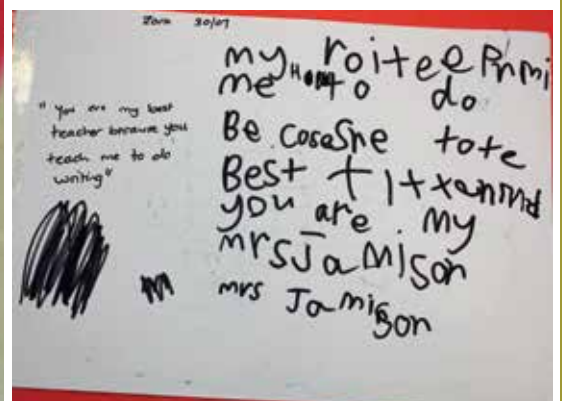 Zara 30/07
"You are my best
teacher because you
teach me to do
writing"
my
me to do
Be cose She tote
Best
you are my
mrs Jamison
mrs Jamison